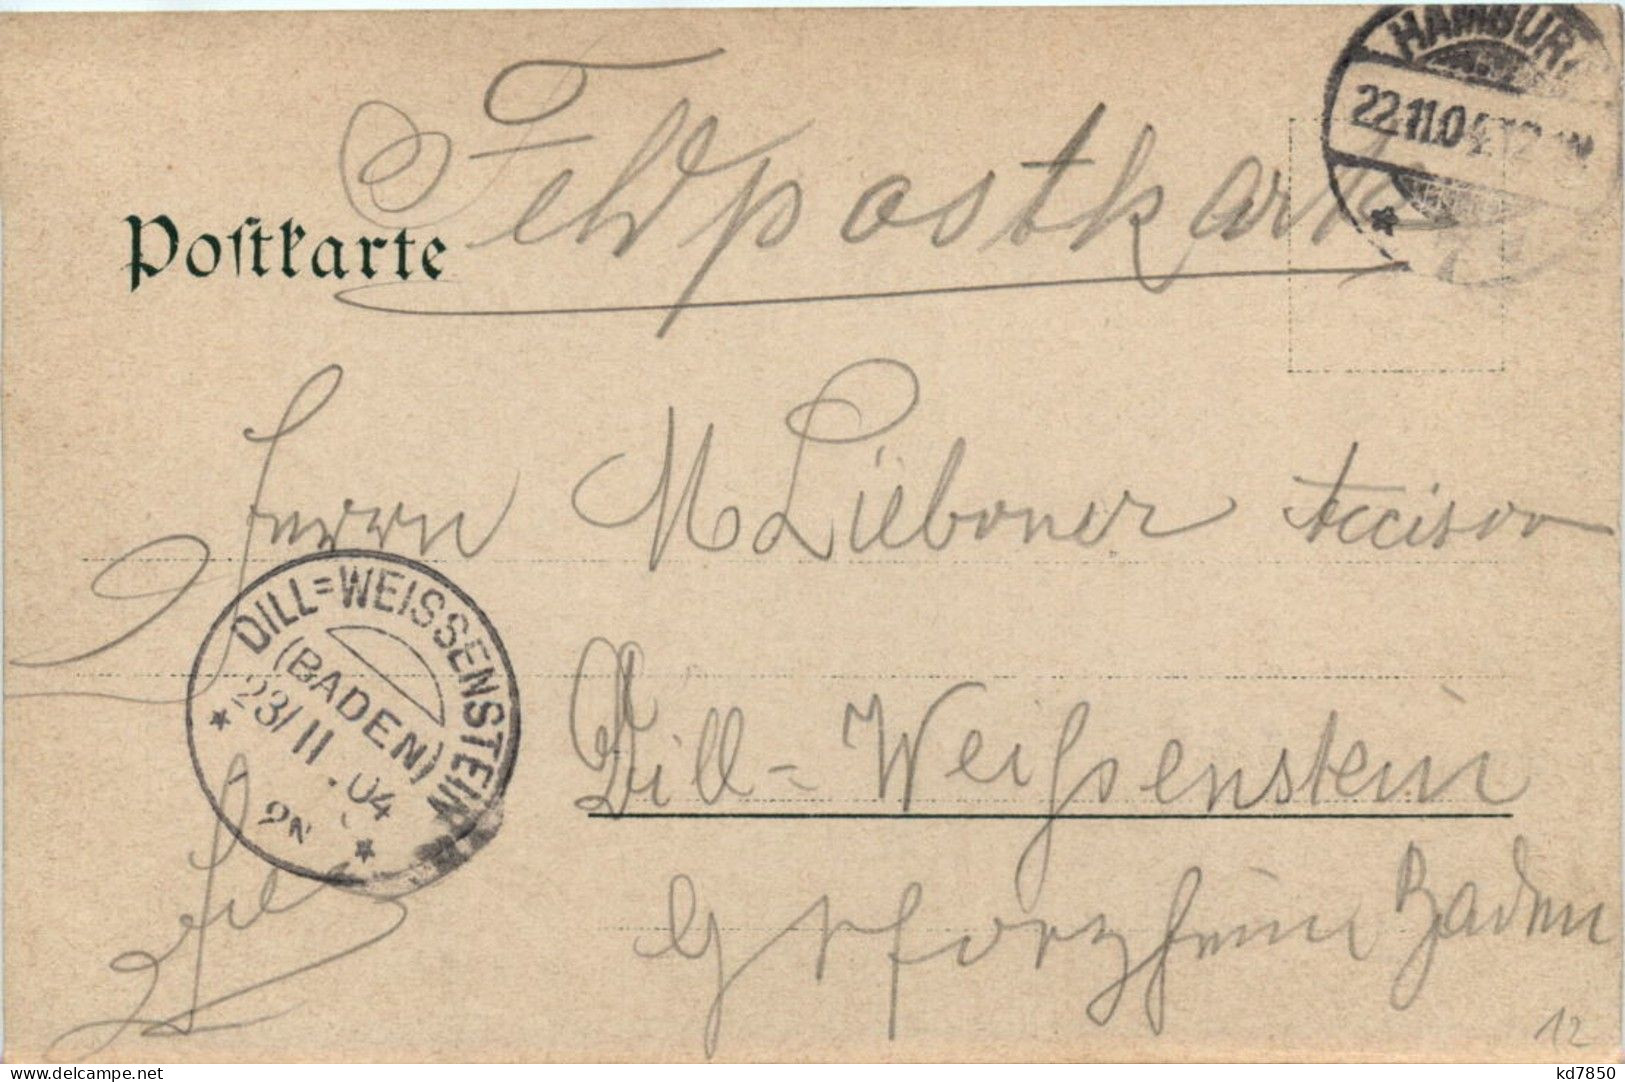 HAMBURG
22.11.04.12
Feldpostkarte
Postkarte
Herrn M Lieboner Accisor
DILL=WEISSENSTEIN
(BADEN)
23/11.04
2N
Dill-Weißenstein
Pforzheim Baden
12
kd7850